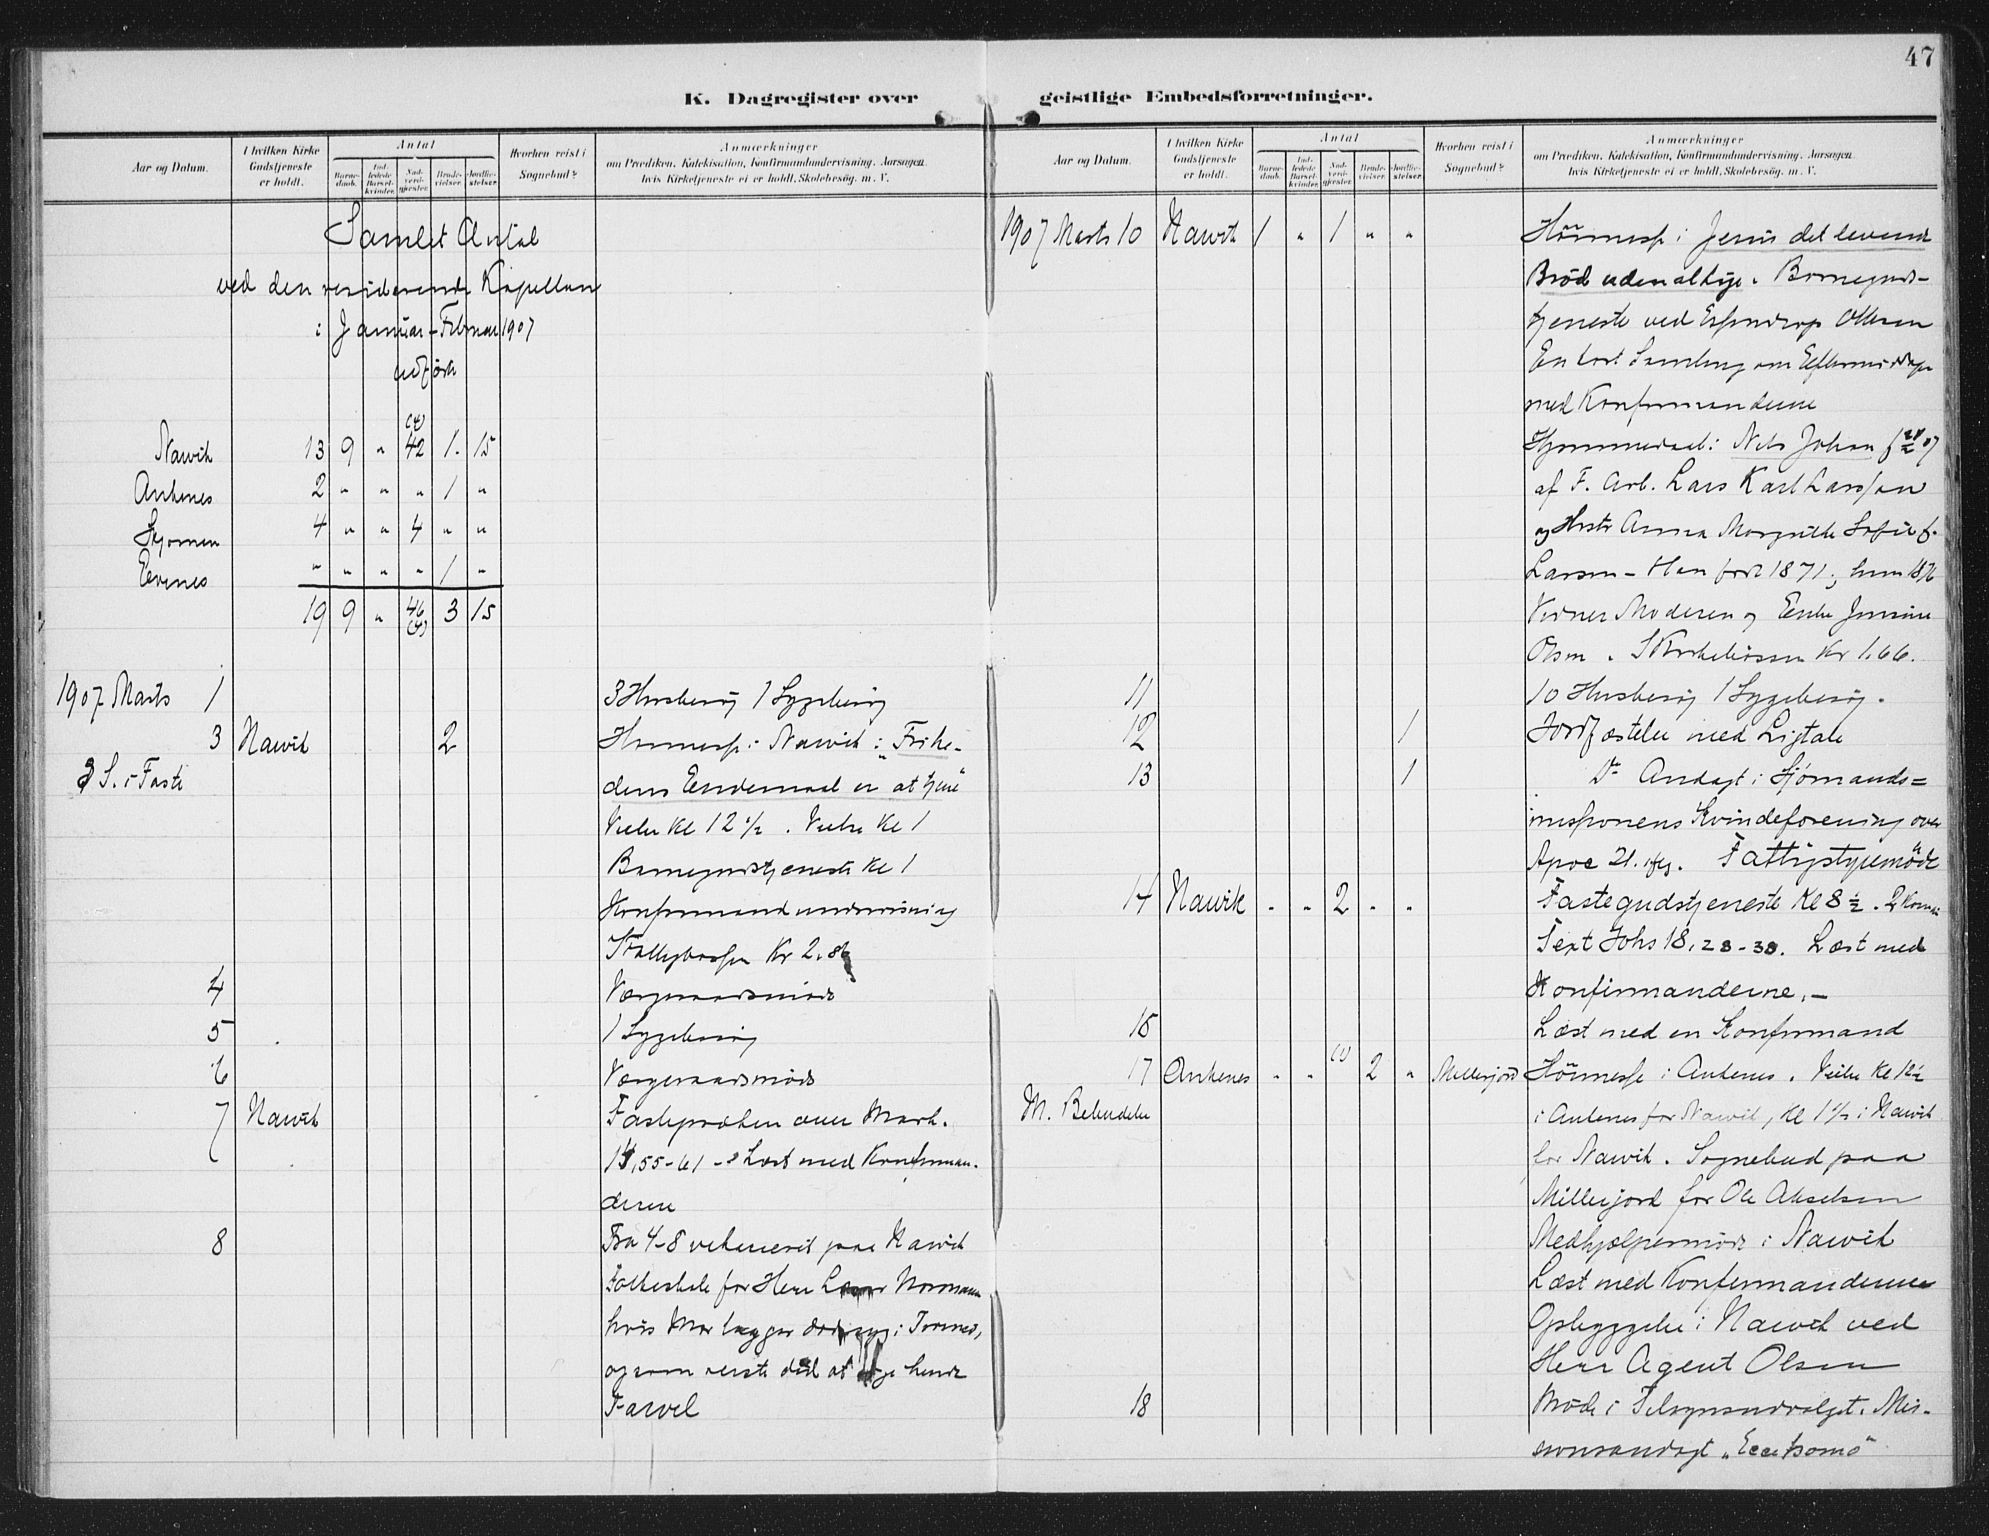 47
K. Dagregister over geistlige Embedsforretninger.
Aar og Datum. I hvilken Kirke Gudstjeneste er holdt. Antal Barnedaab. Indledede Barselkvinder. Nadverdgjester. Brudevielser. Jordfæstelser. Hvorhen reist i Sognebud? Anmærkninger om Prædiken, Katekisation, Konfirmandundervisning, Aarsagen, hvis Kirketjeneste ei er holdt, Skolebesøg, m. V.
Samlet Antal
ved den residerende Kapellan
i Januar-Februar 1907
udført
Narvik 13 9 " 42 1 15
Ankenes 2 " " " 1 "
Skjomen 4 " " 4 " "
Evenes " " " " 1 "
19 9 " 46 3 15
1907 Marts 1 3 Husbesøg 1 Sygebesøg
3 Narvik 2 Høimesse i Narvik: Frihe-
3 S. i Faste dens Eiendommelighed er at tjene
Vielse Kl 12 1/2. Vielse Kl 1
Barnegudstjeneste Kl 1
Konfirmandundervisning
Kr 2.86
4 Vergeraadsmøde
5 1 Sygebesøg
6 Vergeraadsmøde
7 Narvik Fastepræken over Mark.
14,55-61 - Læst med Konfirman-
derne
8 Fra 4-8 vikarieret paa Narvik
Folkeskole for Herr Lærer Normann
hvis Mor ligger dødssyg i Tromsø,
og som reiste did at sige hende
Farvel
Aar og Datum. I hvilken Kirke Gudstjeneste er holdt. Antal Barnedaab. Indledede Barselkvinder. Nadverdgjester. Brudevielser. Jordfæstelser. Hvorhen reist i Sognebud? Anmærkninger om Prædiken, Katekisation, Konfirmandundervisning, Aarsagen, hvis Kirketjeneste ei er holdt, Skolebesøg, m. V.
1907 Marts 10 Narvik 1 " 1 " " Høimesse i Jesus det levende
Brød. Barneguds-
tjeneste ved Olsen
En kort Samling om Eftermiddagen
med Konfirmanderne
Hjemmedaab: Nils Johan f
af F. Arb. Lars Karl Larssen
og Hustr Anna Margrethe Sofie f.
Larsen - Han født 1871, hun 1876
Vidner Moderen og
Olsen. Kr 1.66.
11 10 Husbesøg 1 Sygebesøg.
12 1 Jordfæstelse med Ligtale
13 1 Do Andagt i Sjømands-
missionens Kvindeforening over
Apoc 21. Fattigstyremøde
14 Narvik " " 2 " " Fastegudstjeneste Kl 8 1/2. 2 Komm
Text Johs 18,28-38. Læst med
Konfirmanderne.-
15 Læst med en Konfirmand
17 Ankenes " " (1) 2 " Millerjord Høimesse i Ankenes. Vielse Kl 12 1/2
M. Bebudelse i Ankenes for Narvik, Kl 1 1/2 i Narvik
for Narvik. Sognebud paa
Millerjord for Ole Akselsen
Medhjælpermøde i Narvik
Læst med Konfirmanderne
Opbyggelse i Narvik ved
Herr Agent Olsen
18 Møde i Tilsynsudvalget. Mis-
sionsandagt "Ecce homo"